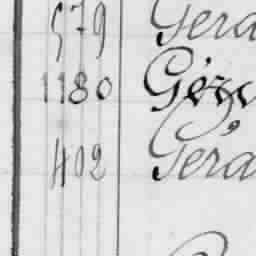 579 Gera
1180 Géza
402 Gera